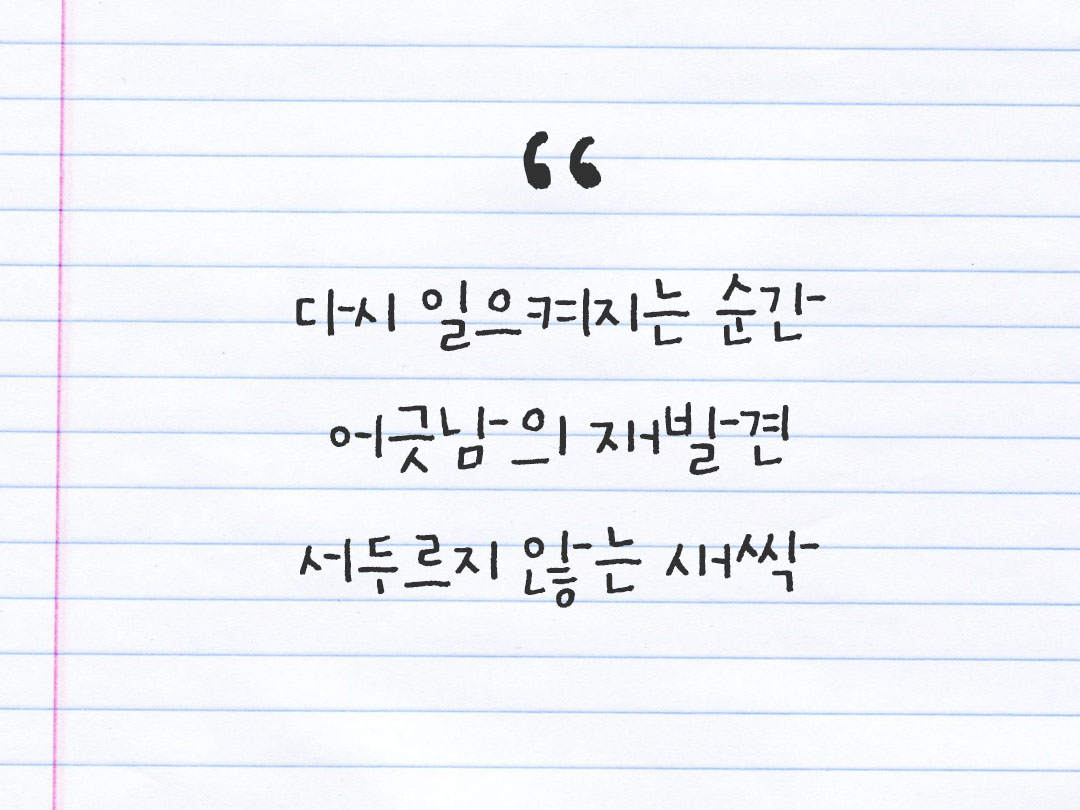 “
다시 일으켜지는 순간
어긋남의 재발견
서두르지 않는 새싹